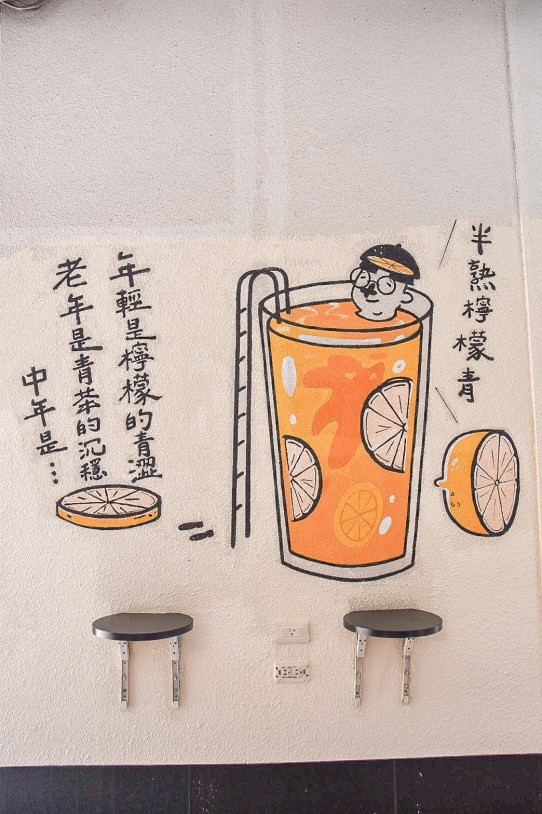 半熟檸檬青
年輕是檸檬的青澀
老年是青茶的沉穩
中年是…